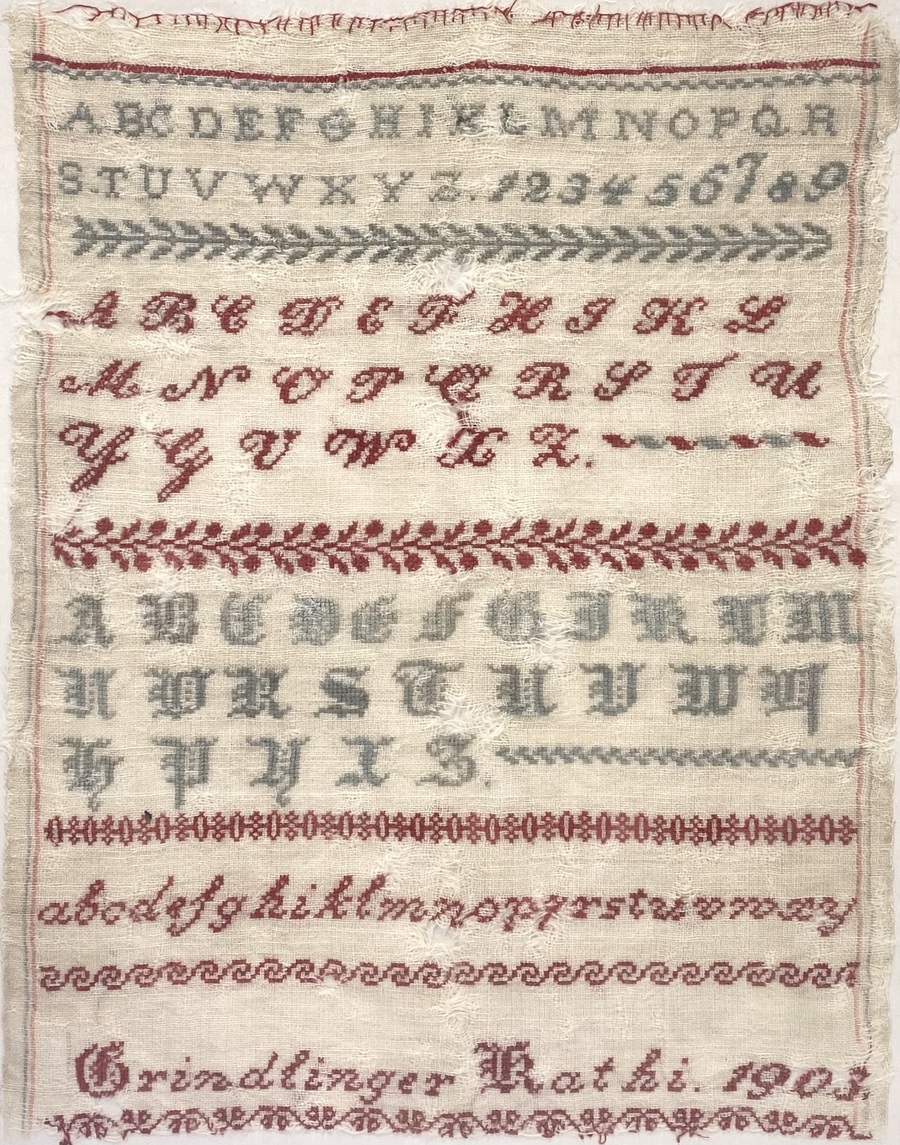 ABCDEFGHIKLMNOPQR
STUVWXYZ.123456789
A B C D E F H I K L
M N O P Q R S T U
Y G V W X Z.
A B C D E F G I K L M
N O R S T U V W Q
H P Y X Z.
abcdefghiklmnopqrstuvwxyz
Grindlinger Kathi. 1903.